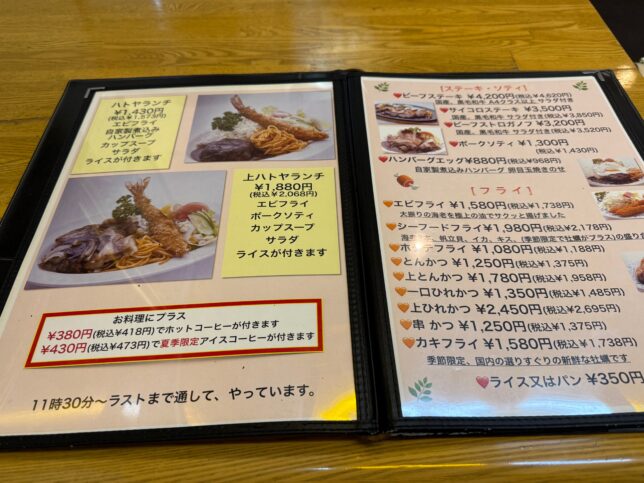 ハトヤランチ
¥1,430円
(税込¥1,573円)
エビフライ
自家製煮込み
ハンバーグ
カップスープ
サラダ
ライスが付きます
上ハトヤランチ
¥1,880円
(税込¥2,068円)
エビフライ
ポークソティ
カップスープ
サラダ
ライスが付きます
お料理にプラス
¥380円(税込¥418円)でホットコーヒーが付きます
¥430円(税込¥473円)で夏季限定アイスコーヒーが付きます
11時30分～ラストまで通して、やっています。
[ステーキ・ソティ]
❤ビーフステーキ ¥4,200円(税込¥4,620円)
国産、黒毛和牛 A4クラス以上 サラダ付き
❤サイコロステーキ ¥3,500円
国産、黒毛和牛 サラダ付き(税込¥3,850円)
❤ビーフストロガノフ ¥3,200円
国産、黒毛和牛 サラダ付き(税込¥3,520円)
❤ポークソティ ¥1,300円
(税込¥1,430円)
❤ハンバーグエッグ¥880円(税込¥968円)
自家製煮込みハンバーグ 卵目玉焼きのせ
[フライ]
🧡エビフライ ¥1,580円(税込¥1,738円)
大振りの海老を極上の油でサクッと揚げました
🧡シーフードフライ ¥1,980円(税込¥2,178円)
帆立貝、イカ、キス、(季節限定で牡蠣がプラス)の盛り
フライ ¥1,080円(税込¥1,188円)
🧡とんかつ ¥1,250円(税込¥1,375円)
🧡上とんかつ ¥1,780円(税込¥1,958円)
🧡一口ひれかつ ¥1,350円(税込¥1,485円)
🧡上ひれかつ ¥2,450円(税込¥2,695円)
🧡串 かつ ¥1,250円(税込¥1,375円)
🧡カキフライ ¥1,580円(税込¥1,738円)
季節限定、国内の選りすぐりの新鮮な牡蠣です
❤ライス又はパン ¥350円